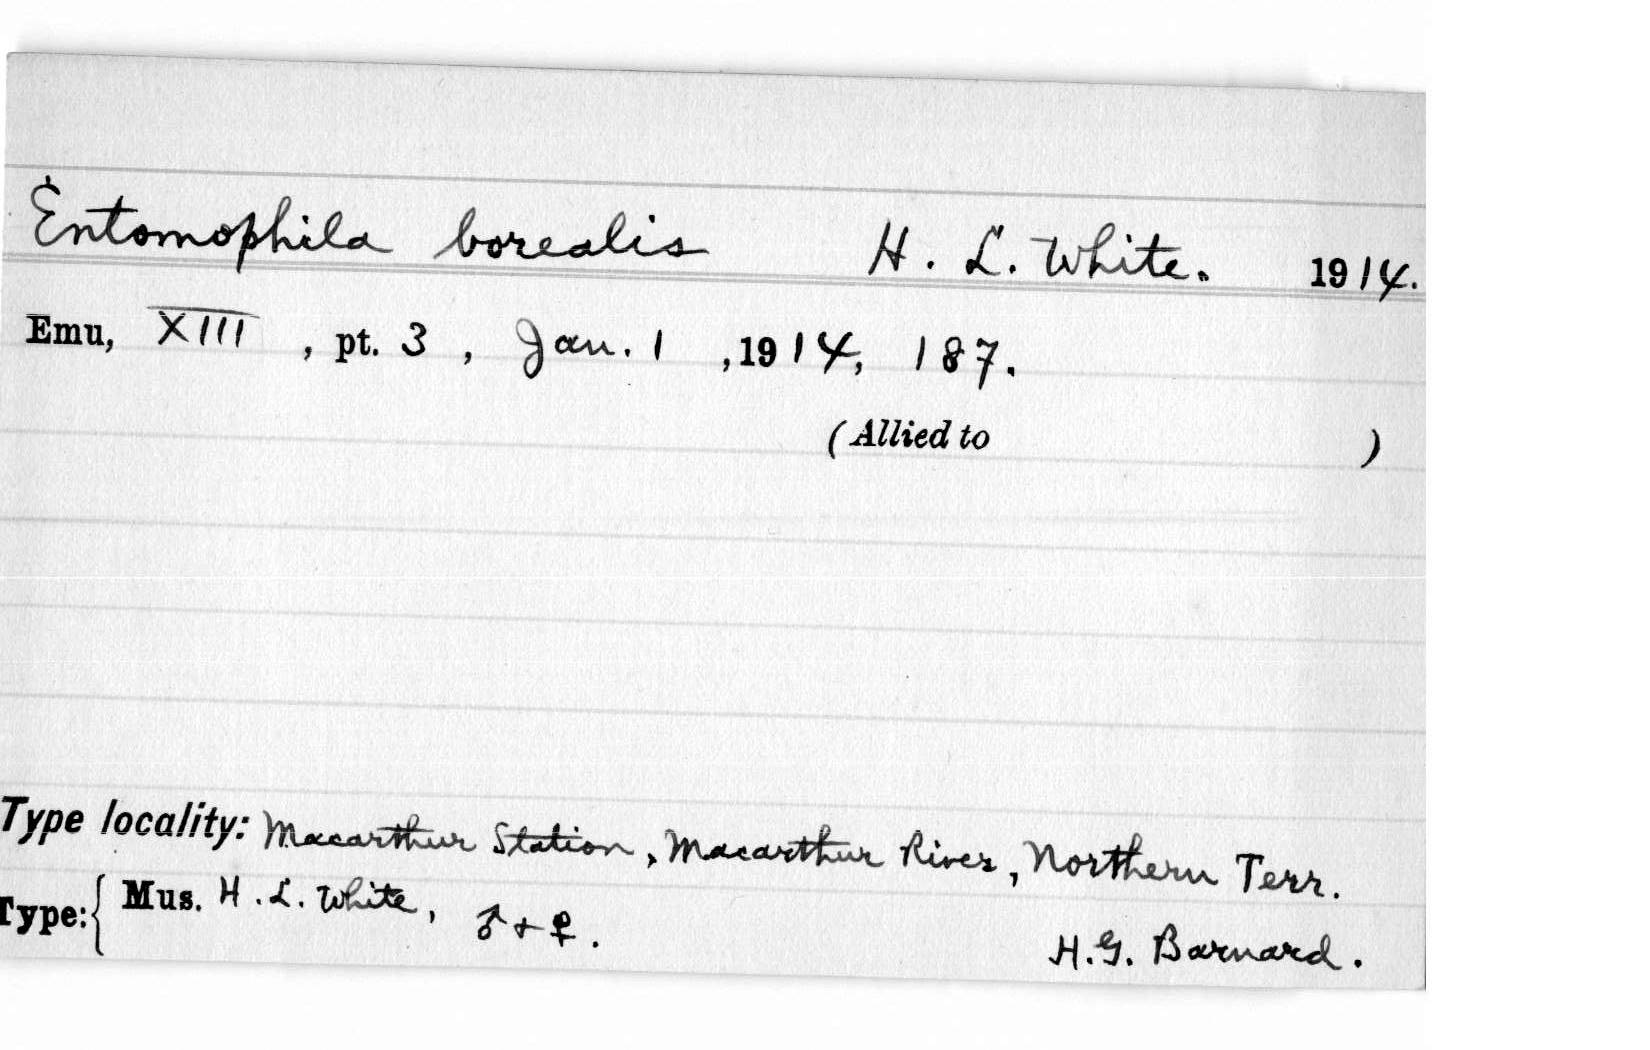 Entomophila borealis H. L. White. 1914.
Emu, XIII, pt. 3, Jan. 1, 1914, 187.
(Allied to )
Type locality: Macarthur Station, Macarthur River, Northern Terr.
Type: { Mus. H. L. White, ♂ + ♀.
H. G. Barnard.